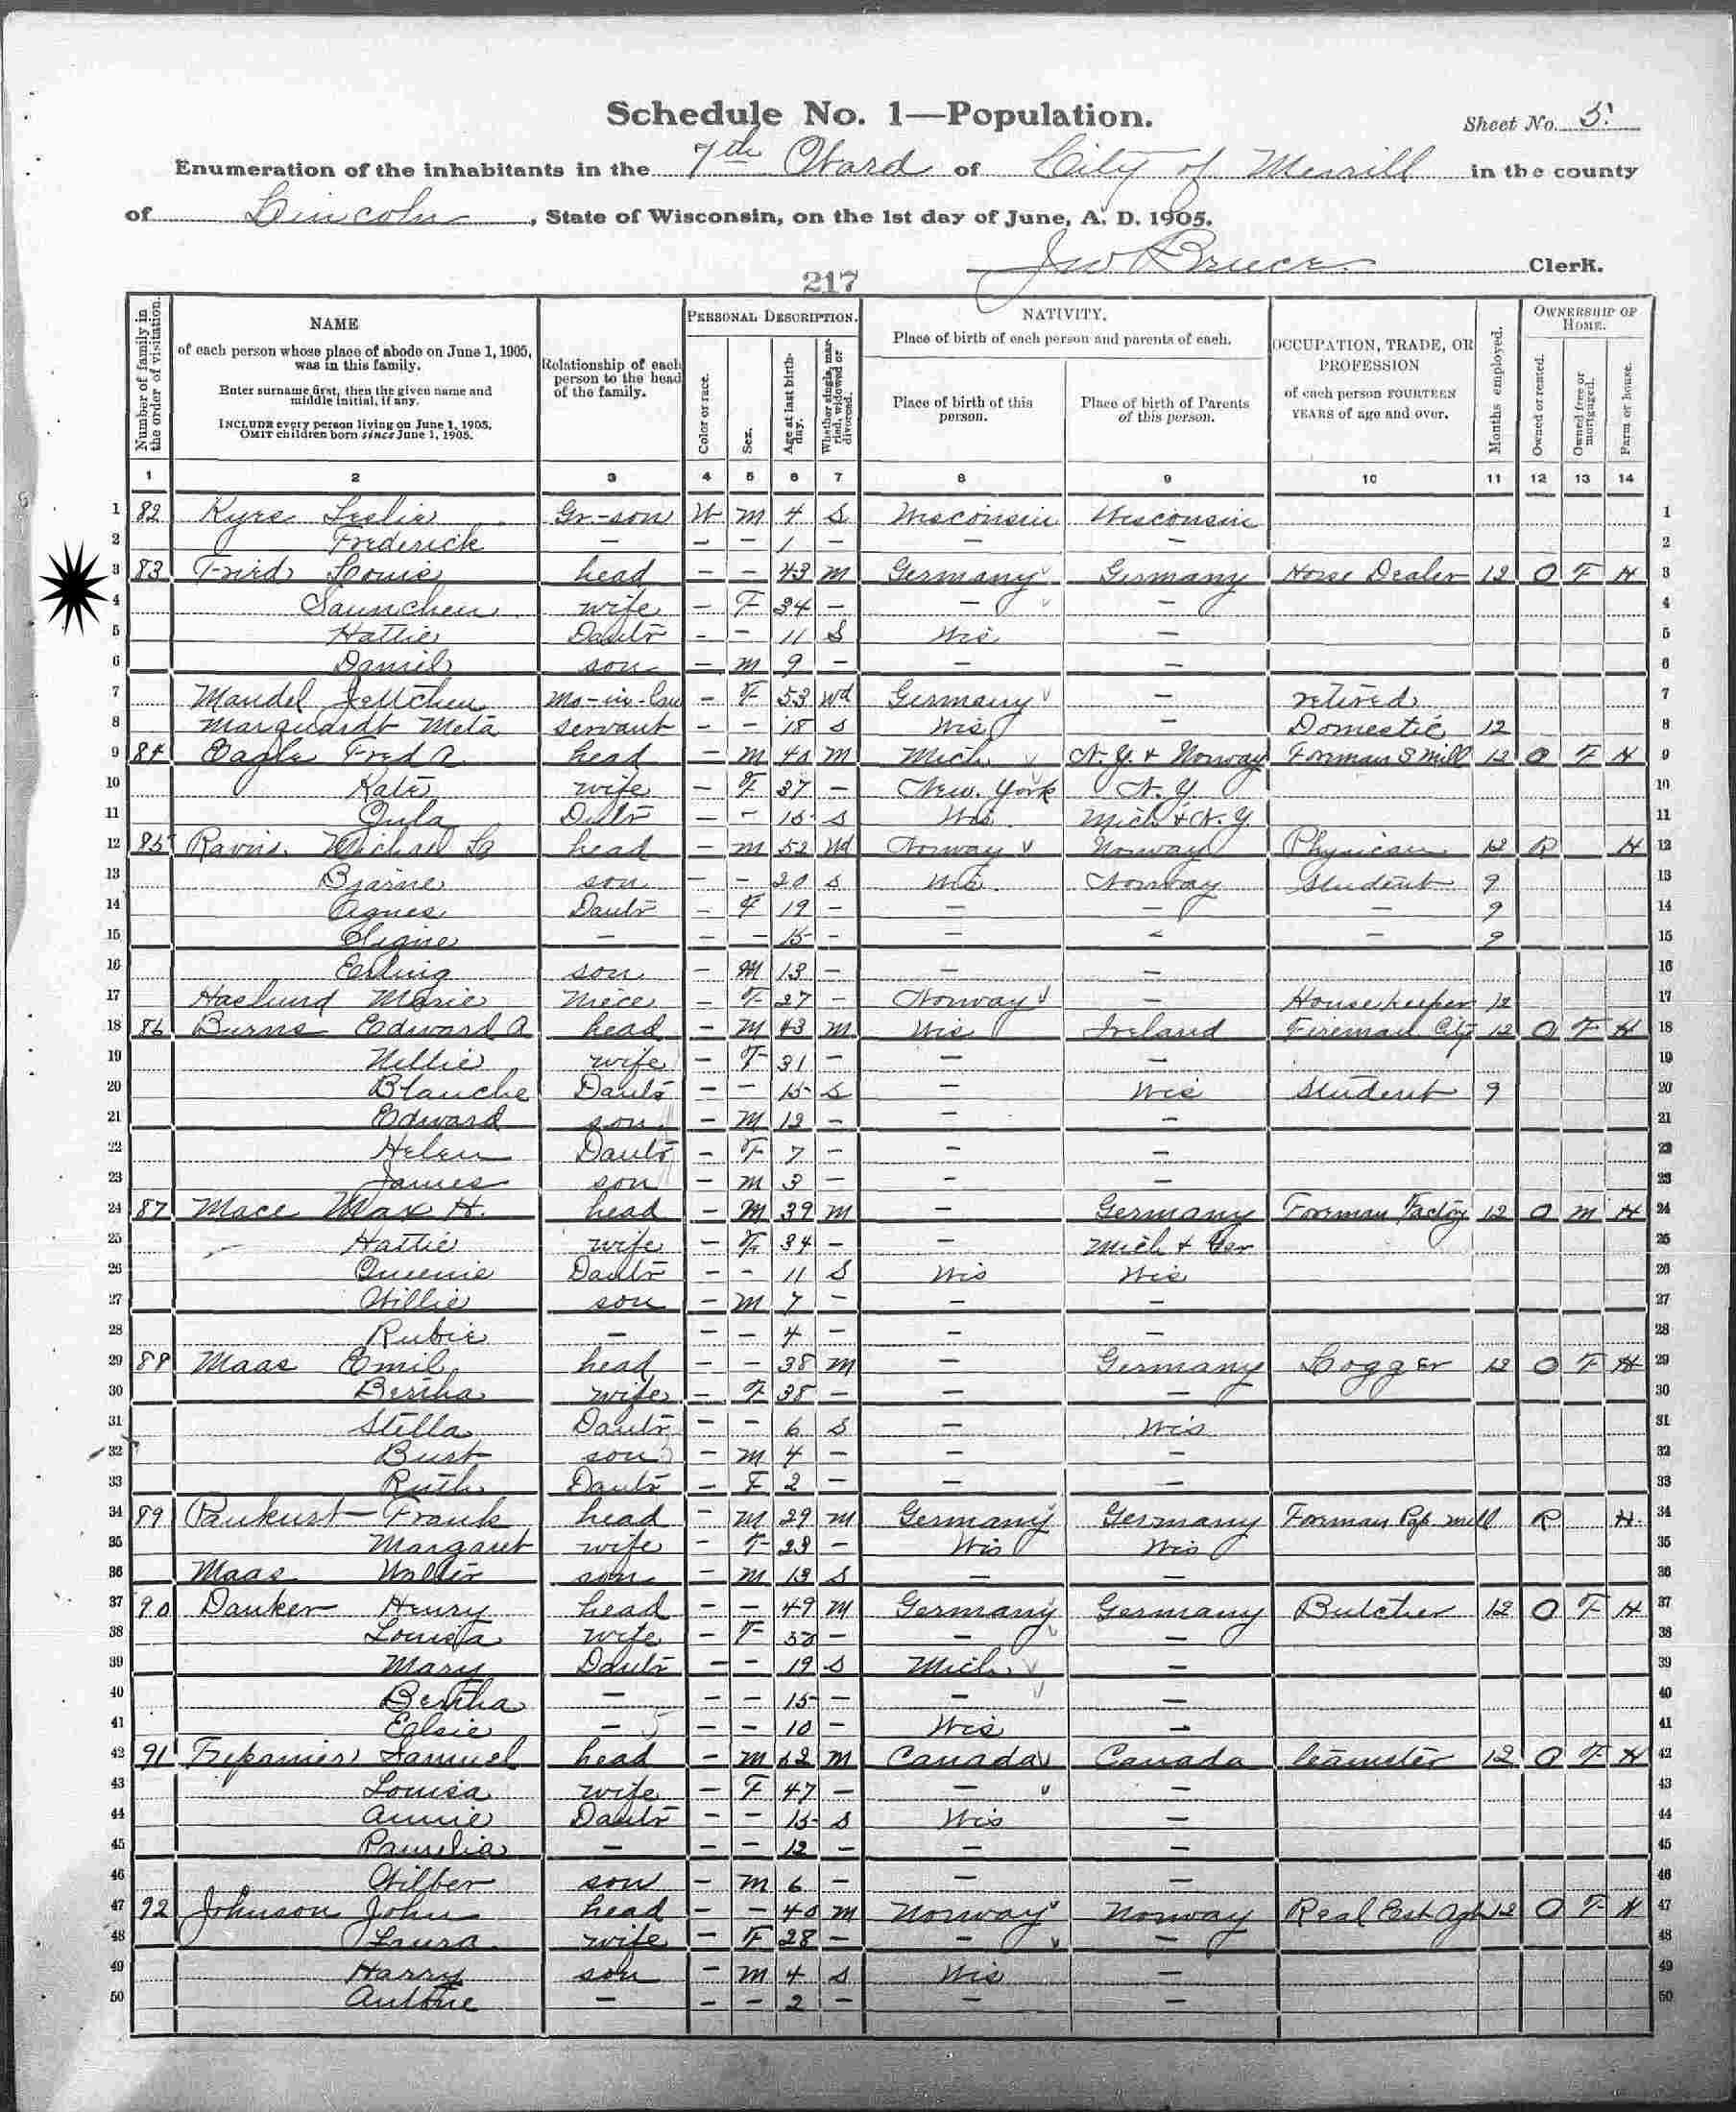 Schedule No. 1—Population.
Sheet No. 5.
Enumeration of the inhabitants in the 7th Ward of City of Merrill in the county
of Lincoln, State of Wisconsin, on the 1st day of June, A. D. 1905.
Jno Bruce Clerk.
217
Number of family in the order of visitation.
NAME
of each person whose place of abode on June 1, 1905, was in this family.
Enter surname first, then the given name and middle initial, if any.
INCLUDE every person living on June 1, 1905.
OMIT children born since June 1, 1905.
Relationship of each person to the head of the family.
PERSONAL DESCRIPTION.
Color or race.
Sex.
Age at last birthday.
Whether single, married, widowed or divorced.
NATIVITY.
Place of birth of each person and parents of each.
Place of birth of this person.
Place of birth of Parents of this person.
OCCUPATION, TRADE, OR PROFESSION
of each person FOURTEEN YEARS of age and over.
Months employed.
OWNERSHIP OF HOME.
Owned or rented.
Owned free or mortgaged.
Farm or house.
1 2 3 4 5 6 7 8 9 10 11 12 13 14
1 82 Kyre Leslie Gr-son W m 4 S Wisconsin Wisconsin 1
2 Frederick — — — 1 — — — 2
3 83 Fried Louis head — — 43 m Germany Germany Horse Dealer 12 O F H 3
4 wife — F 34 — — — 4
5 Hattie Dautr — — 11 S Wis — 5
6 Daniel son — m 9 — — — 6
7 Mandel Jettchen Mo-in-law — F 53 Wd Germany — retired 7
8 Marquardt Meta servant — — 18 S Wis — Domestic 12 8
9 84 Eagle Fred A head — m 40 m Mich N.Y. & Norway Forman S mill 12 O F H 9
10 Kate wife — F 37 — New York N.Y 10
11 Dautr — — 15 S Wis Mich & N.Y. 11
12 85 Ravn Michael head — m 52 Wd Norway Norway Physician 12 R H 12
13 Bjarne son — — 20 S Wis. Norway Student 9 13
14 Agnes Dautr — F 19 — — — — 9 14
15 — — — 15 — — — — 9 15
16 Erling son — M 13 — — — 16
17 Haslund Marie Niece — F 27 — Norway — Housekeeper 12 17
18 86 Burns Edward A head — M 43 m Wis Ireland Fireman City 12 O F H 18
19 Nellie wife — F 31 — — — 19
20 Blanche Dautr — — 15 S — Wis Student 9 20
21 Edward son — M 12 — — — 21
22 Helen Dautr — F 7 — — — 22
23 James son — m 3 — — — 23
24 87 Mace Max H. head — M 39 m — Germany Forman Factory 12 O m H 24
25 Hattie wife — F 34 — — Mich & Ger 25
26 Queenie Dautr — — 11 S Wis Wis 26
27 Willie son — M 7 — — — 27
28 Rubie — — — 4 — — — 28
29 88 Maas Emil head — — 38 m — Germany Logger 12 O F H 29
30 Bertha wife — F 38 — — — 30
31 Stella Dautr — — 6 S — Wis 31
32 Burt son — m 4 — — — 32
33 Ruth Dautr — F 2 — — — 33
34 89 Pankust Frank head — m 29 m Germany Germany Forman Pap mill R H 34
35 Margaret wife — F 23 — Wis Wis 35
36 Maas Walter son — M 13 S — — 36
37 90 Danker Henry head — — 49 M Germany Germany Butcher 12 O F H 37
38 Louisa wife — F 50 — — — 38
39 Mary Dautr — — 19 S Mich — 39
40 Bertha — — — 15 — — — 40
41 Eglsie — — — 10 — Wis — 41
42 91 Trepanier Samuel head — m 62 m Canada Canada teamster 12 O F H 42
43 Louisa wife — F 47 — — — 43
44 Annie Dautr — — 15 S Wis — 44
45 Pamelia — — — 12 — — — 45
46 Wilber son — M 6 — — — 46
47 92 Johnson John head — — 40 m Norway Norway Real Est Agt 12 O F H 47
48 Laura wife — F 28 — — — 48
49 Harry son — m 4 S Wis — 49
50 Antone — — — 2 — — — 50